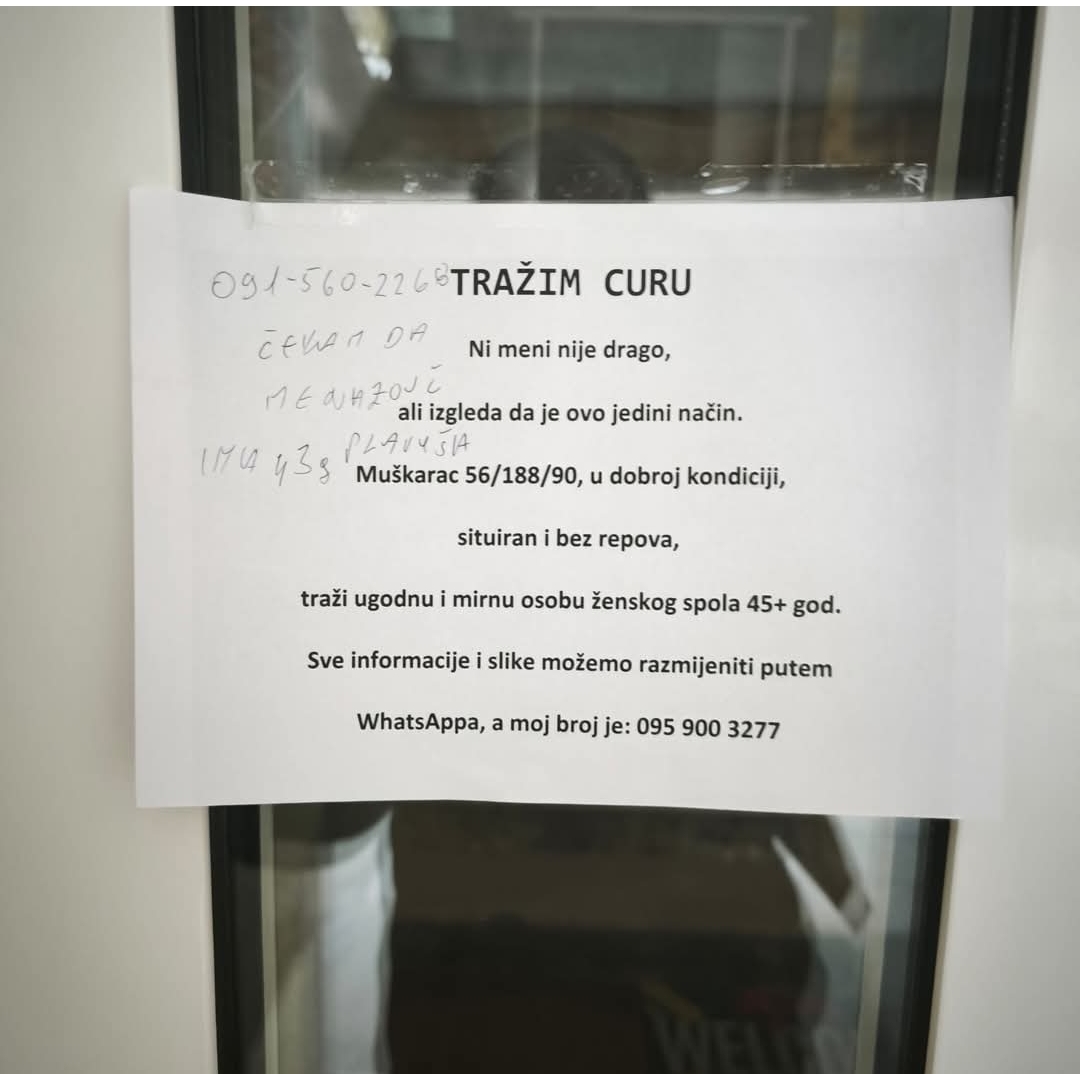 TRAŽIM CURU
Ni meni nije drago,
ali izgleda da je ovo jedini način.
Muškarac 56/188/90, u dobroj kondiciji,
situiran i bez repova,
traži ugodnu i mirnu osobu ženskog spola 45+ god.
Sve informacije i slike možemo razmijeniti putem
WhatsAppa, a moj broj je: 095 900 3277
091-560-2268
ČEKAM DA
ME
PLAVUŠA
43g